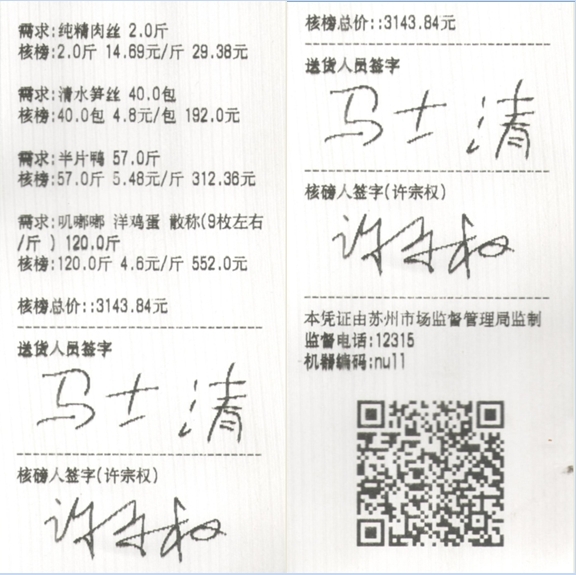 需求:纯精肉丝 2.0斤
核榜:2.0斤 14.69元/斤 29.38元
需求:清水笋丝 40.0包
核榜:40.0包 4.8元/包 192.0元
需求:半片鸭 57.0斤
核榜:57.0斤 5.48元/斤 312.36元
需求:叽嘟嘟 洋鸡蛋 散称(9枚左右
/斤 ) 120.0斤
核榜:120.0斤 4.6元/斤 552.0元
核榜总价::3143.84元
送货人员签字
马士清
核磅人签字(许宗权)
许宗权
核榜总价::3143.84元
送货人员签字
马士清
核磅人签字(许宗权)
许宗权
本凭证由苏州市场监督管理局监制
监督电话:12315
机器编码:null